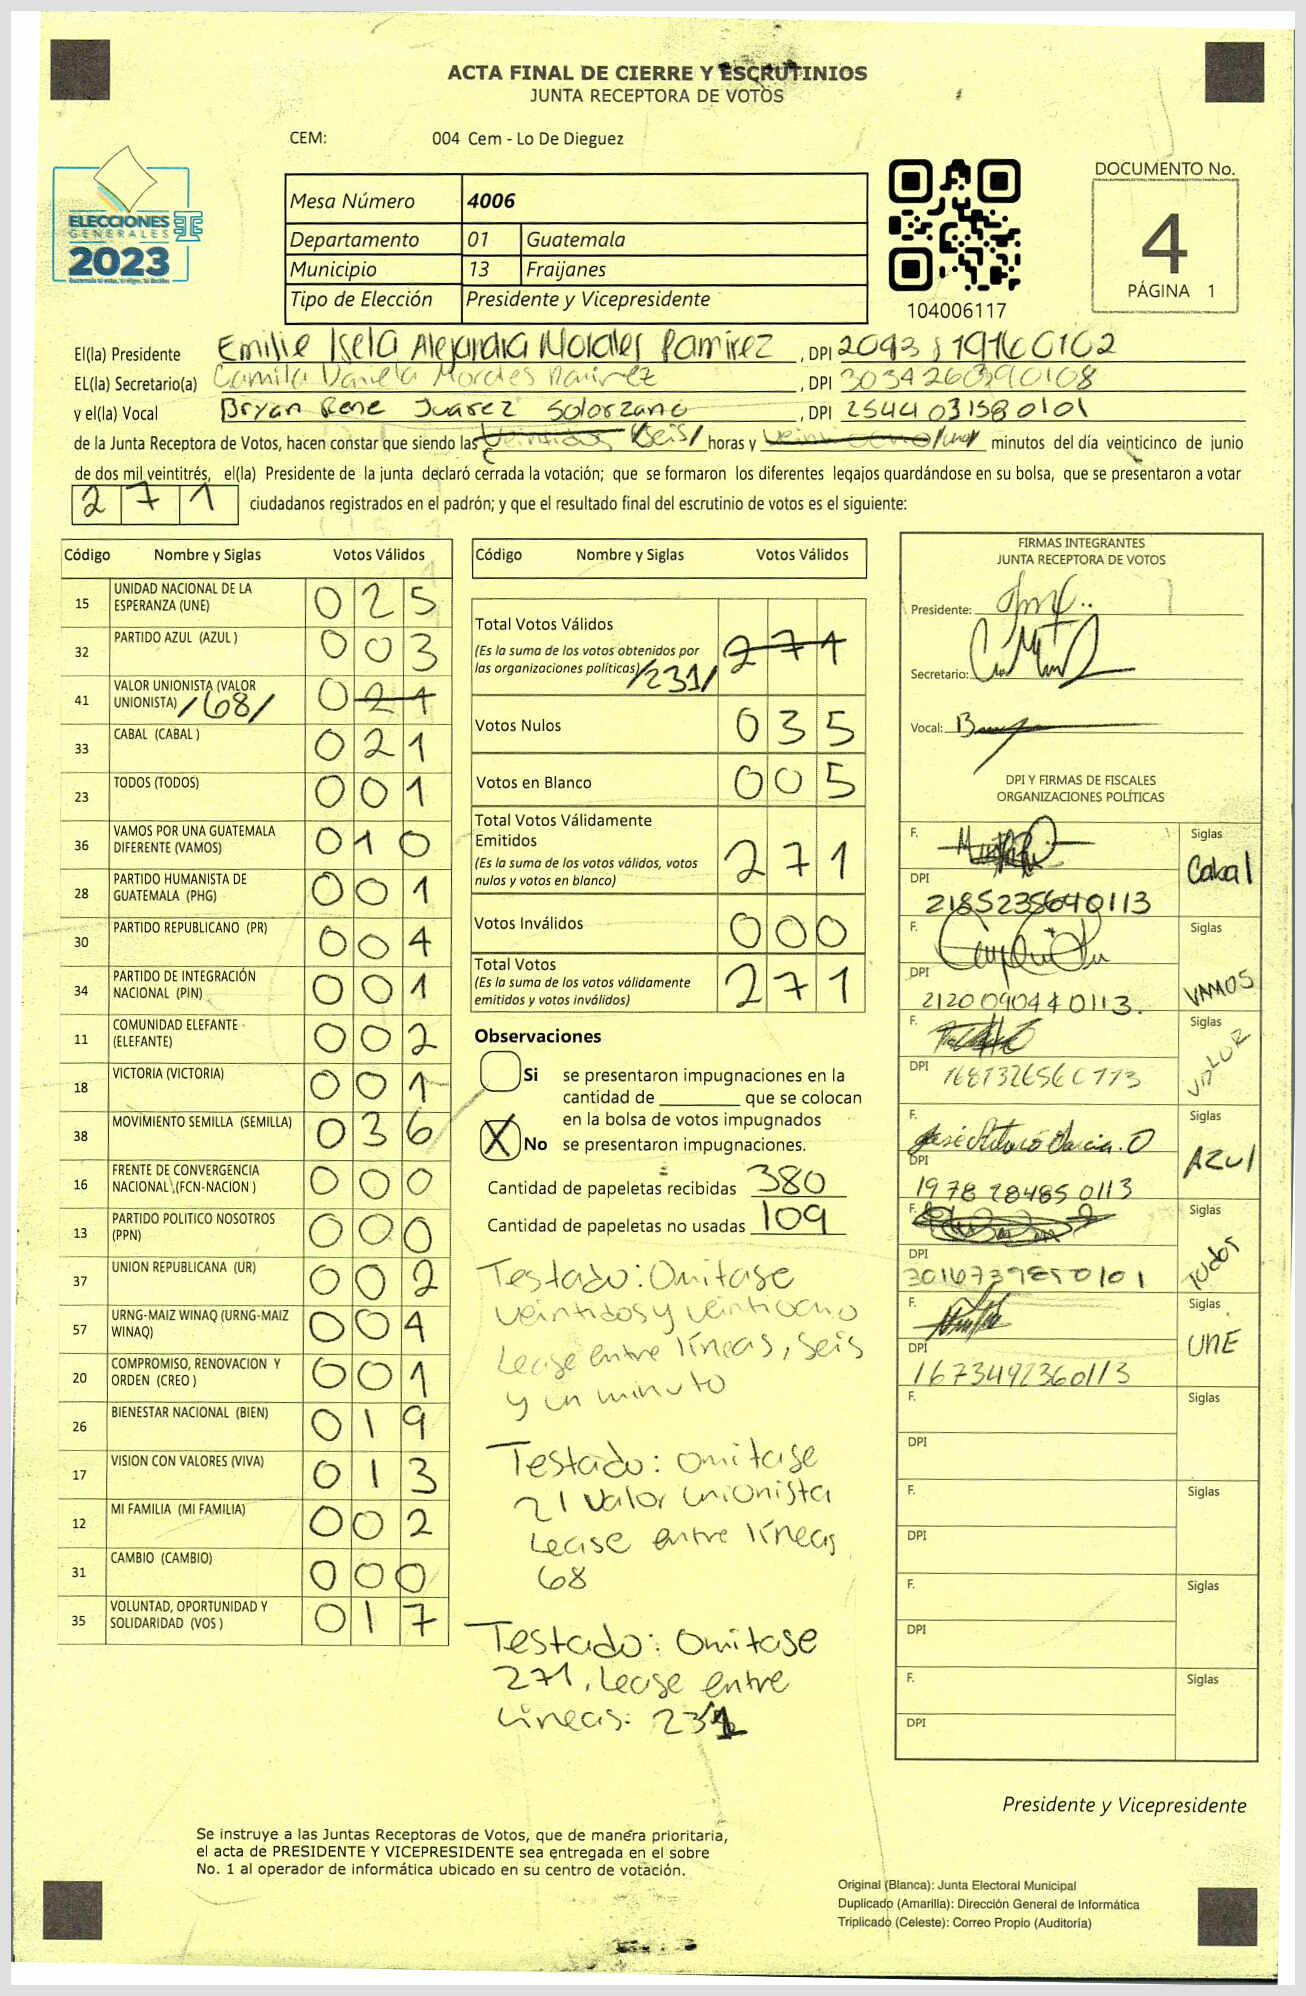 ACTA FINAL DE CIERRE Y ESCRUTINIOS
JUNTA RECEPTORA DE VOTOS
CEM: 004 Cem - Lo De Dieguez
ELECCIONES
GENERALES
2023
Mesa Número 4006
Departamento 01 Guatemala
Municipio 13 Fraijanes
Tipo de Elección Presidente y Vicepresidente
104006117
DOCUMENTO No.
4
PÁGINA 1
El(la) Presidente Emilie Isela Alejandra Morales Ramirez, DPI
EL(la) Secretario(a) Camila Daniela Morales Ramirez, DPI 3034260390108
y el(la) Vocal Bryan Rene Juarez Solorzano, DPI 2544031580101
de la Junta Receptora de Votos, hacen constar que siendo las veintidos /Seis/ horas y veintiocho /un/ minutos del día veinticinco de junio
de dos mil veintitrés, el(la) Presidente de la junta declaró cerrada la votación; que se formaron los diferentes legajos guardándose en su bolsa, que se presentaron a votar
271 ciudadanos registrados en el padrón; y que el resultado final del escrutinio de votos es el siguiente:
Código Nombre y Siglas Votos Válidos
15 UNIDAD NACIONAL DE LA ESPERANZA (UNE) 025
32 PARTIDO AZUL (AZUL ) 003
41 VALOR UNIONISTA (VALOR UNIONISTA) /68/ 021
33 CABAL (CABAL ) 021
23 TODOS (TODOS) 001
36 VAMOS POR UNA GUATEMALA DIFERENTE (VAMOS) 010
28 PARTIDO HUMANISTA DE GUATEMALA (PHG) 001
30 PARTIDO REPUBLICANO (PR) 004
34 PARTIDO DE INTEGRACIÓN NACIONAL (PIN) 001
11 COMUNIDAD ELEFANTE (ELEFANTE) 002
18 VICTORIA (VICTORIA) 001
38 MOVIMIENTO SEMILLA (SEMILLA) 036
16 FRENTE DE CONVERGENCIA NACIONAL (FCN-NACION ) 000
13 PARTIDO POLITICO NOSOTROS (PPN) 000
37 UNION REPUBLICANA (UR) 002
57 URNG-MAIZ WINAQ (URNG-MAIZ WINAQ) 004
20 COMPROMISO, RENOVACION Y ORDEN (CREO ) 001
26 BIENESTAR NACIONAL (BIEN) 019
17 VISION CON VALORES (VIVA) 013
12 MI FAMILIA (MI FAMILIA) 002
31 CAMBIO (CAMBIO) 000
35 VOLUNTAD, OPORTUNIDAD Y SOLIDARIDAD (VOS ) 017
Código Nombre y Siglas Votos Válidos
Total Votos Válidos
(Es la suma de los votos obtenidos por
las organizaciones políticas) /231/ 271
Votos Nulos 035
Votos en Blanco 005
Total Votos Válidamente
Emitidos
(Es la suma de los votos válidos, votos
nulos y votos en blanco) 271
Votos Inválidos 000
Total Votos
(Es la suma de los votos válidamente
emitidos y votos inválidos) 271
Observaciones
Si se presentaron impugnaciones en la
cantidad de ________ que se colocan
en la bolsa de votos impugnados
X No se presentaron impugnaciones.
Cantidad de papeletas recibidas 380
Cantidad de papeletas no usadas 109
Testado: Omitase
veintidos y veintiocho
Lease entre líneas, seis
y un minuto
Testado: omitase
21 Valor unionista
Lease entre líneas
68
Testado: Omitase
271, Lease entre
Líneas: 231
FIRMAS INTEGRANTES
JUNTA RECEPTORA DE VOTOS
Presidente:
Secretario:
Vocal:
DPI Y FIRMAS DE FISCALES
ORGANIZACIONES POLÍTICAS
F. Siglas
Cabal
DPI
2185235640113
F. Siglas
VAMOS
DPI
2120090440113.
F. Siglas
VALOR
DPI
F. José Arturo Garcia. O Siglas
AZUL
DPI
1978284850113
F. Siglas
TODOS
DPI
3016739850101
F. Siglas
UNE
DPI
1673492360113
F. Siglas
DPI
F. Siglas
DPI
F. Siglas
DPI
F. Siglas
DPI
Presidente y Vicepresidente
Se instruye a las Juntas Receptoras de Votos, que de manera prioritaria,
el acta de PRESIDENTE Y VICEPRESIDENTE sea entregada en el sobre
No. 1 al operador de informática ubicado en su centro de votación.
Original (Blanca): Junta Electoral Municipal
Duplicado (Amarilla): Dirección General de Informática
Triplicado (Celeste): Correo Propio (Auditoría)